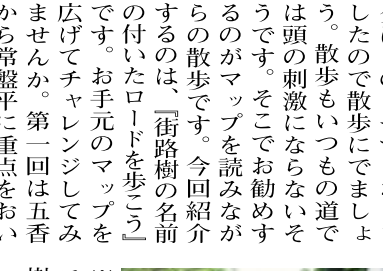 したので散歩にでましょ
う。散歩もいつもの道で
は頭の刺激にならないそ
うです。そこでお勧めす
るのがマップを読みなが
らの散歩です。今回紹介
するのは、『街路樹の名前
の付いたロードを歩こう』
です。お手元のマップを
広げてチャレンジしてみ
ませんか。第一回は五香
から常盤平に重点をおい